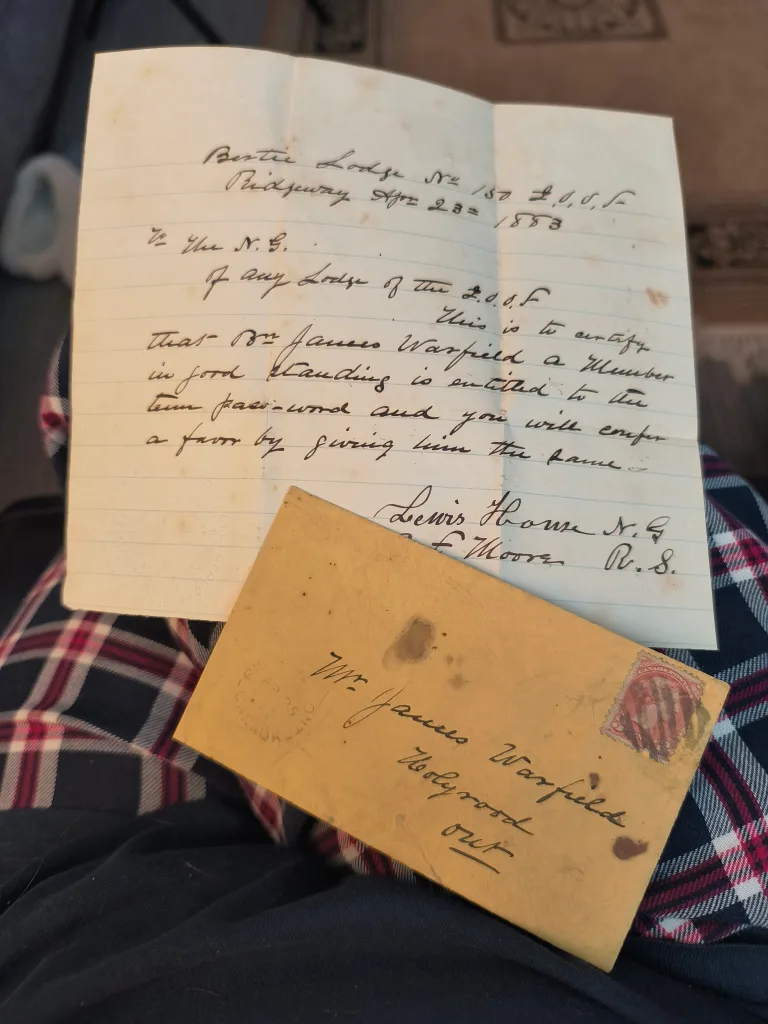 Bertie Lodge No 150 I.O.O.F
Ridgeway Apr 23rd 1883
To the N.G.
of any Lodge of the I.O.O.F
This is to certify
that Bro James Warfield a Member
in good standing is entitled to the
term pass-word and you will confer
a favor by giving him the same
Lewis House N.G
F Moore R.S.
Mr. James Warfield
Holyrood
Ont